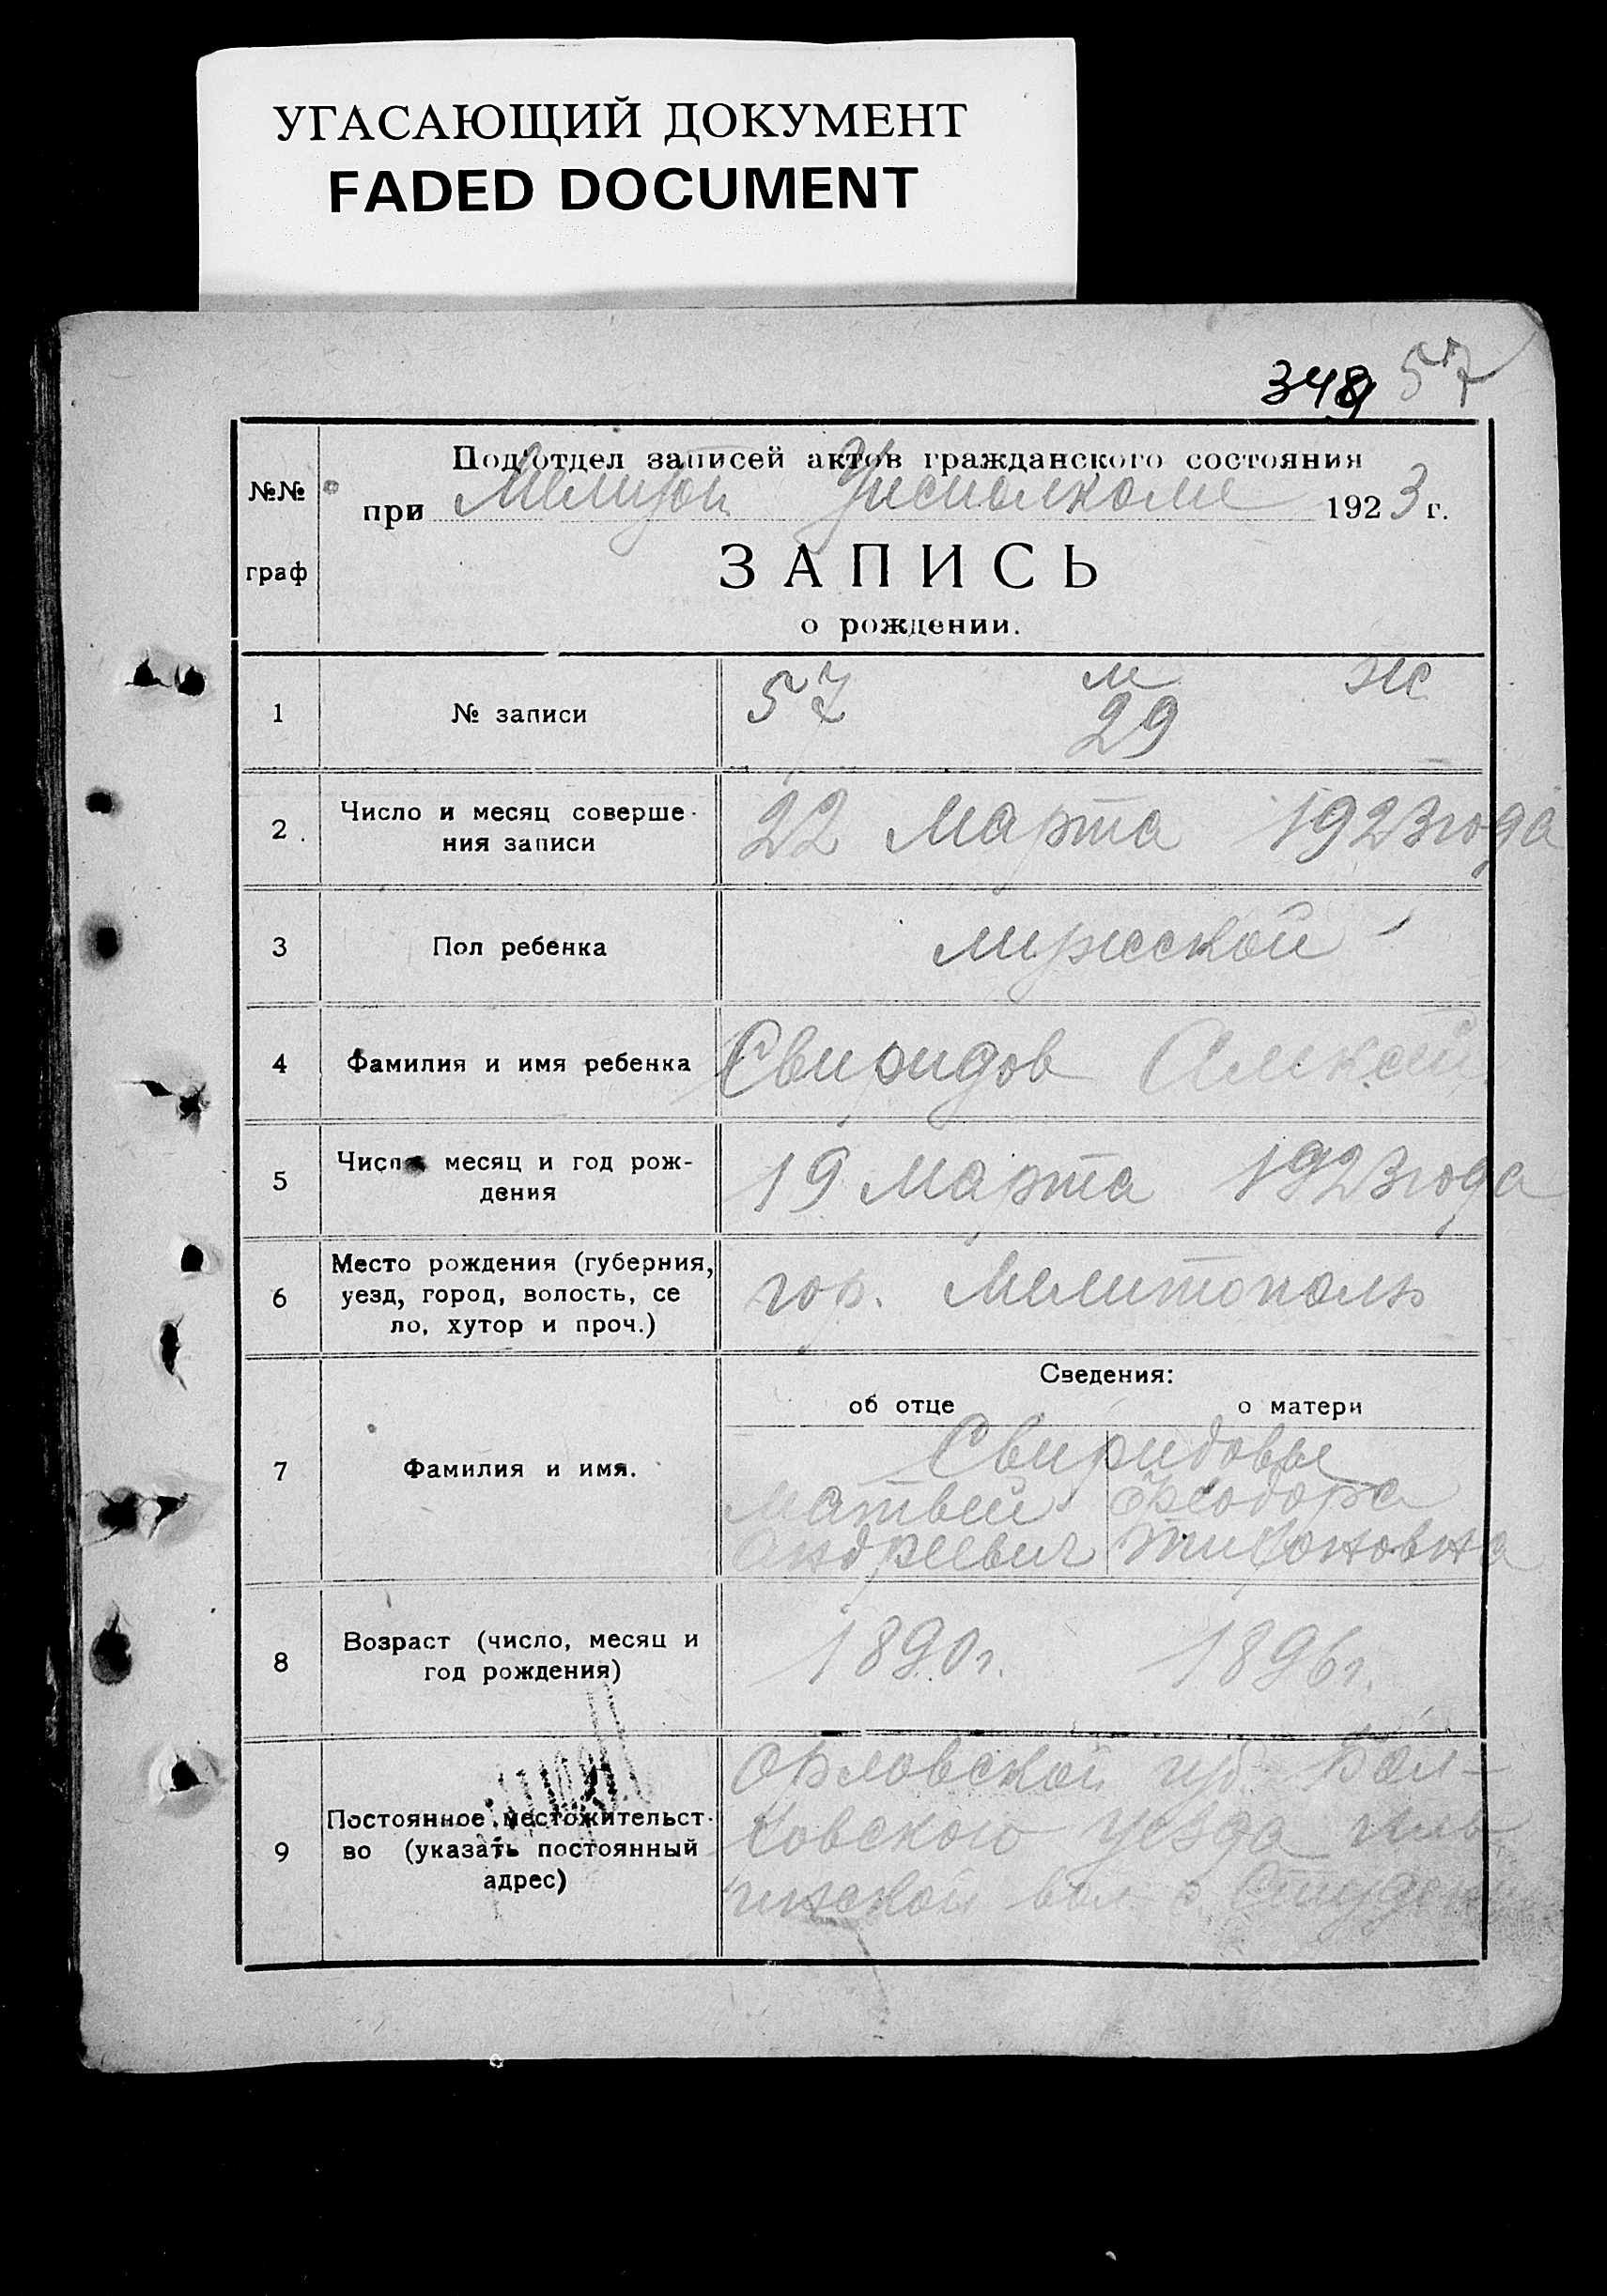 УГАСАЮЩИЙ ДОКУМЕНТ
FADED DOCUMENT
348 57
№№
граф
Под'отдел записей актов гражданского состояния
при Мелитоп. Уисполкоме 1923 г.
ЗАПИСЬ
о рождении.
1 № записи 57 м ж
29
2. Число и месяц соверше-
ния записи
22 Марта 1923 года
3 Пол ребенка мужской
4 Фамилия и имя ребенка Свиридов Алексей
5 Число месяц и год рож-
дения
19 Марта 1923 года
6 Место рождения (губерния,
уезд, город, волость, се
ло, хутор и проч.)
гор. Мелитополь
Сведения:
об отце о матери
7 Фамилия и имя.
Свиридовы
Матвей Феодора
Андреевич Тихоновна
8 Возраст (число, месяц и
год рождения)
1890г. 1896г.
9 Постоянное местожительст-
во (указать постоянный
адрес)
Орловской губ. Бол-
ховского уезда
вол. с.